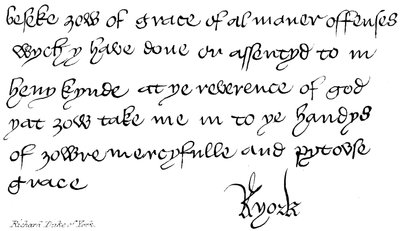 beseke zow of grace of al maner offenses
wych y have done or assentyd to in
heny kynde at ye reverence of god
yat zow take me in to ye handys
of zowre mercyfulle and pytowse
grace
R York
Richard Duke of York.